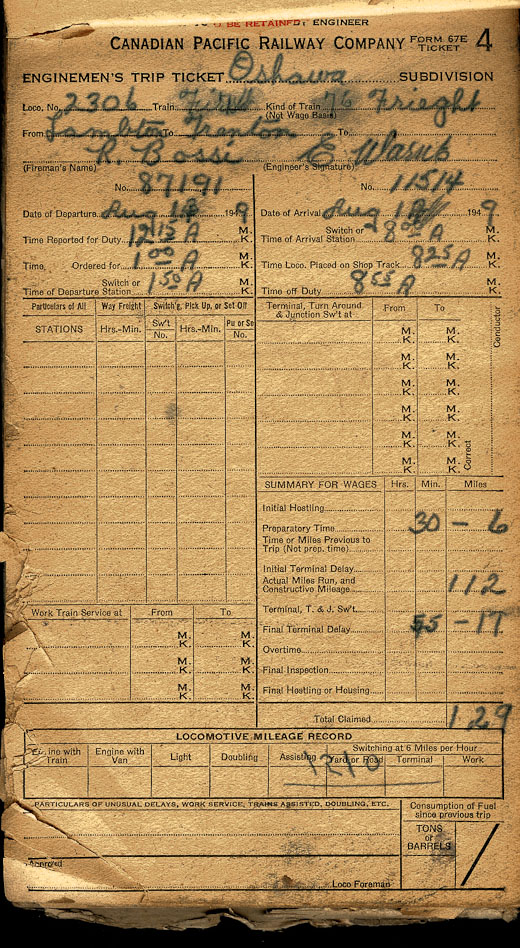 TO BE RETAINED ENGINEER
CANADIAN PACIFIC RAILWAY COMPANY FORM 67E TICKET 4
ENGINEMEN'S TRIP TICKET Oshawa SUBDIVISION
Loco. No. 2306 Train Kind of Train (Not Wage Basis) 76 Frieght
From Lambton To Trenton To
R. Bossi E Wasub
(Fireman's Name) (Engineer's Signature)
No. 87191 No. 11514
Date of Departure Aug 18 1949 Date of Arrival Aug 18 1949
Time Reported for Duty 12 15 A M. K. Switch or Time of Arrival Station 8 00 A M. K.
Time, Ordered for 1 00 A M. K. Time Loco. Placed on Shop Track 8 25 A M. K.
Switch or Time of Departure Station 1 50 A M. K. Time off Duty 8 55 A M. K.
Particulars of All Way Freight Switch'g, Pick Up, or Set Off Terminal, Turn Around & Junction Sw't at From To
STATIONS Hrs.-Min. Sw't No. Hrs.-Min. Pu or So No.
M. K. M. K.
M. K. M. K.
M. K. M. K.
M. K. M. K.
M. K. M. K.
M. K. M. K.
Conductor
Correct
SUMMARY FOR WAGES Hrs. Min. Miles
Initial Hostling
Preparatory Time 30 - 6
Time or Miles Previous to Trip (Not prep. time)
Initial Terminal Delay
Actual Miles Run, and Constructive Mileage 112
Terminal, T. & J. Sw't.
Final Terminal Delay 55 - 11
Overtime
Final Inspection
Final Hostling or Housing
Total Claimed 129
Work Train Service at From To
M. K. M. K.
M. K. M. K.
M. K. M. K.
LOCOMOTIVE MILEAGE RECORD
Engine with Train Engine with Van Light Doubling Assisting Switching at 6 Miles per Hour
Yard or Road Terminal Work
1210
PARTICULARS OF UNUSUAL DELAYS, WORK SERVICE, TRAINS ASSISTED, DOUBLING, ETC.
Consumption of Fuel since previous trip
TONS or BARRELS
Approved
Loco Foreman